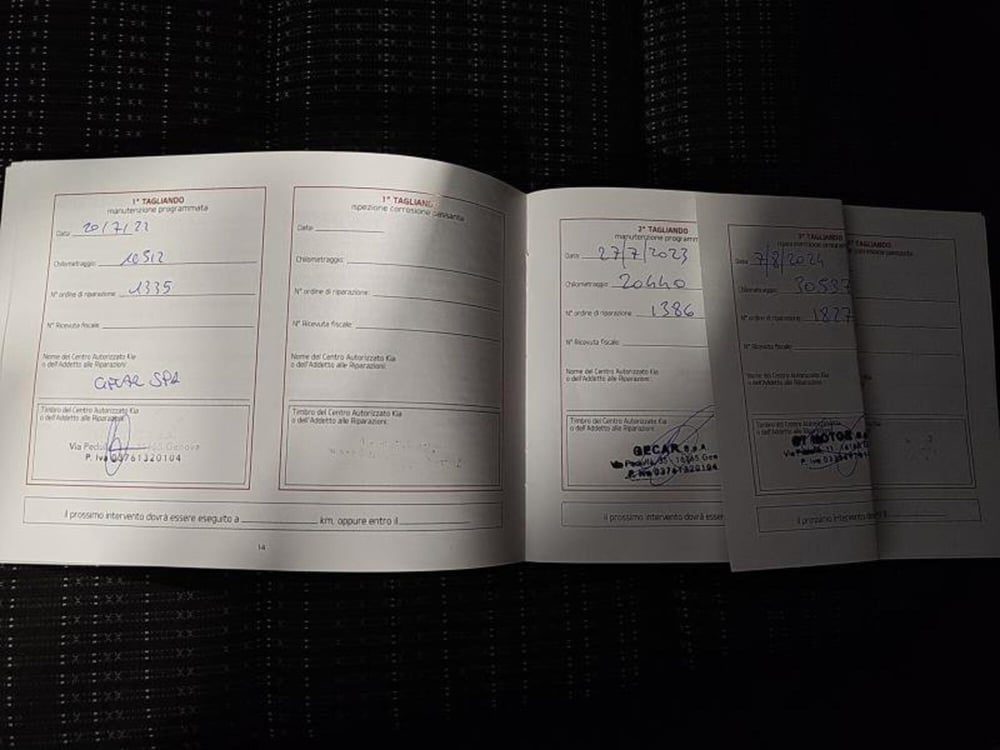 1° TAGLIANDO
manutenzione programmata
Data 20/7/22
Chilometraggio: 10512
N° ordine di riparazione: 1335
N° Ricevuta fiscale:
Nome del Centro Autorizzato Kia
o dell'Addetto alle Riparazioni:
GECAR SPA
Timbro del Centro Autorizzato Kia
o dell'Addetto alle Riparazioni:
Via 16165 Genova
P. Iva 03761320104
1° TAGLIANDO
ispezione corrosione passante
Data
Chilometraggio:
N° ordine di riparazione:
N° Ricevuta fiscale:
Nome del Centro Autorizzato Kia
o dell'Addetto alle Riparazioni:
Timbro del Centro Autorizzato Kia
o dell'Addetto alle Riparazioni:
Il prossimo intervento dovrà essere eseguito a km, oppure entro il
14
2° TAGLIANDO
manutenzione programm
Data 27/7/2023
Chilometraggio: 20440
N° ordine di riparazione: 1386
N° Ricevuta fiscale:
Nome del Centro Autorizzato Kia
o dell'Addetto alle Riparazioni:
Timbro del Centro Autorizzato Kia
o dell'Addetto alle Riparazioni:
GECAR S.p.A
16165 Gen
P. Iva 03761320104
Il prossimo intervento dovrà esser
3° TAGLIANDO
Data 7/8/2024
Chilometraggio: 30537
N° ordine di riparazione: 1827
N° Ricevuta fiscale:
Nome del Centro Autorizzato Kia
o dell'Addetto alle Riparazioni:
Timbro del Centro
o dell'Addetto alle Riparazioni:
MOTOR
P. Iva
Il prossimo intervento dovrà
TAGLIANDO
corrosione passante